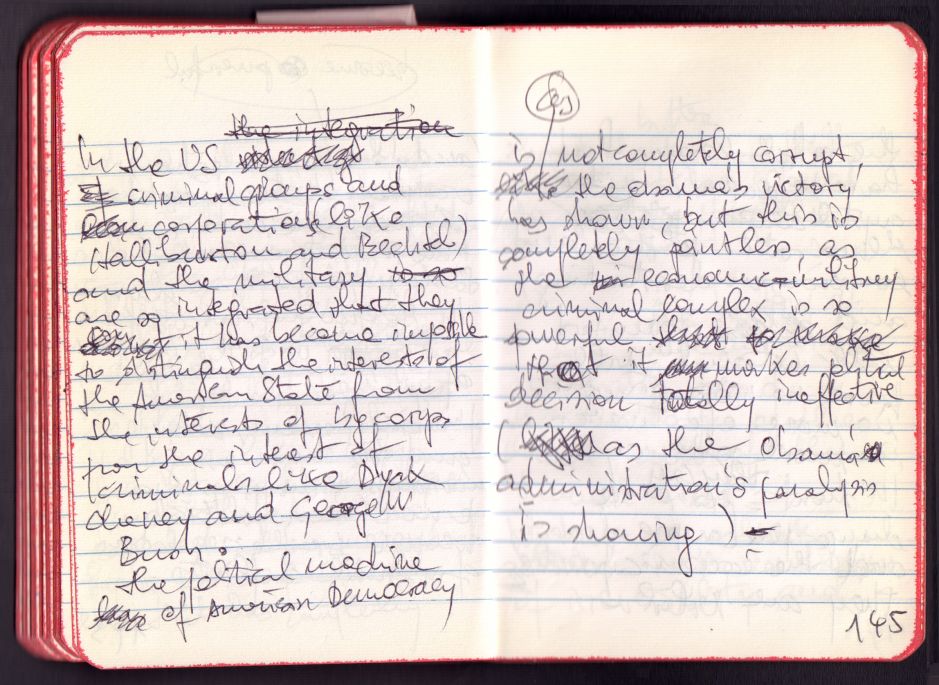 the integration
In the US
criminal groups and
corporations (like
Halliburton and Bechtel)
and the military
are so integrated that they
it has become impossible
to distinguish the interests of
the American State from
the interests of big corps
from the interest of
criminals like Dyck
cheney and George W
Bush.
the political machine
of American Democracy
(as)
is not completely corrupt,
the obama's victory
has shown, but this is
completely pointless, as
the economic-military
criminal complex is so
powerful
that it makes political
decision totally ineffective
(as the obama
administration's paralysis
is showing)
145